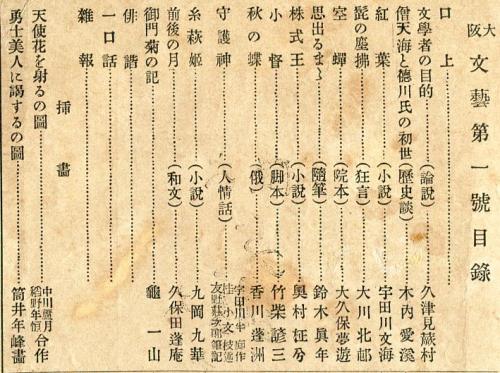 大阪 文藝第一號目錄
口上
文學者の目的………(論說) 久津見蕨村
僧天海と德川氏の初世(歷史談) 木內愛溪
紅葉………(小說) 宇田川文海
髭の塵拂………(狂言) 大川北邨
空蟬………(院本) 大久保夢遊
思出るまゝ………(隨筆) 鈴木眞年
株式王………(小說) 奧村柾兮
小督………(脚本) 竹柴諺三
秋の蝶………(俄) 香川蓬洲
守護神………(人情話) 宇田川半痴作 桂小文枝述 友野莊次郎筆記
糸萩姬………(小說) 九岡九華
前後の月………(和文) 久保田蓬庵
御門菊の記………龜一山
俳諧………
一口話………
雜報………
揷畫
天使花を射るの圖………中川蘆月 稻野年恒 合作
勇士美人に謁するの圖………筒井年峰畫